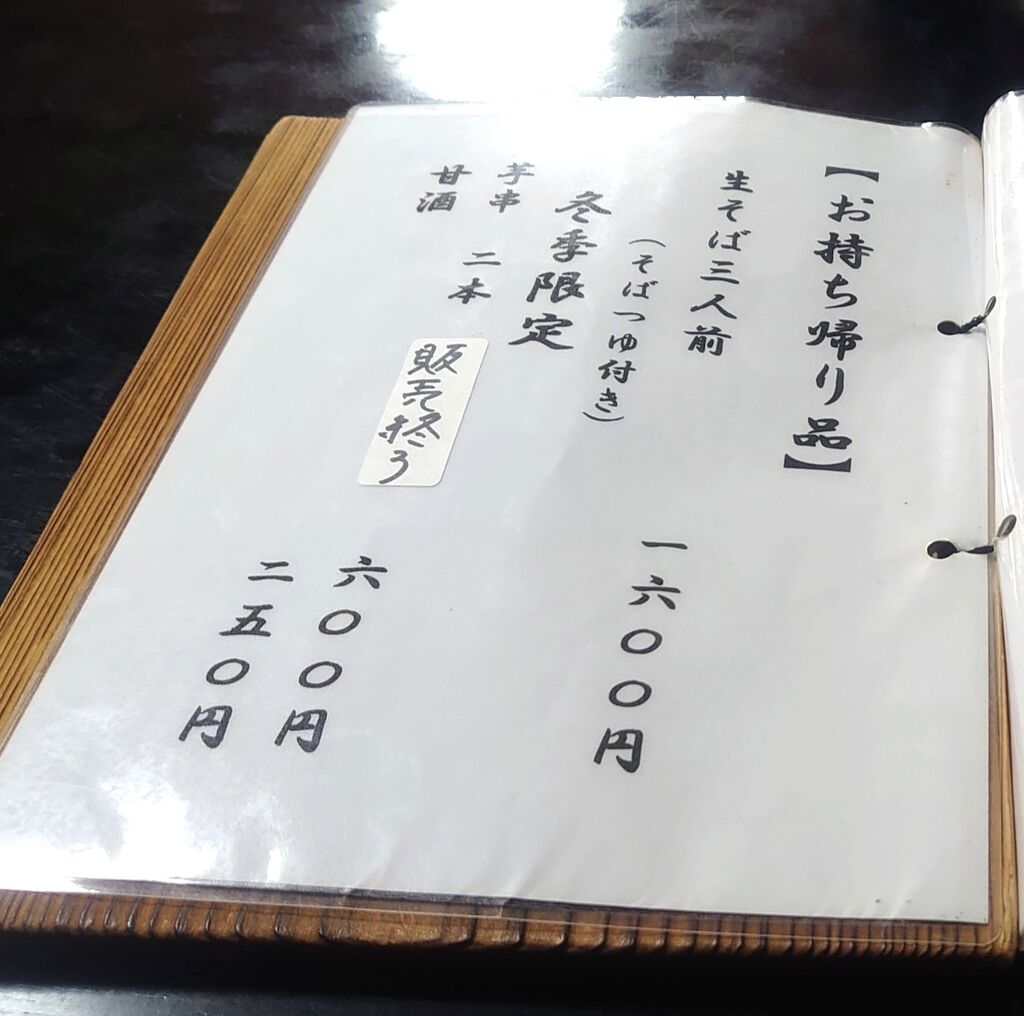 【お持ち帰り品】
生そば三人前 一六〇〇円
(そばつゆ付き)
冬季限定
芋串 二本 六〇〇円
甘酒 二五〇円
販売終了